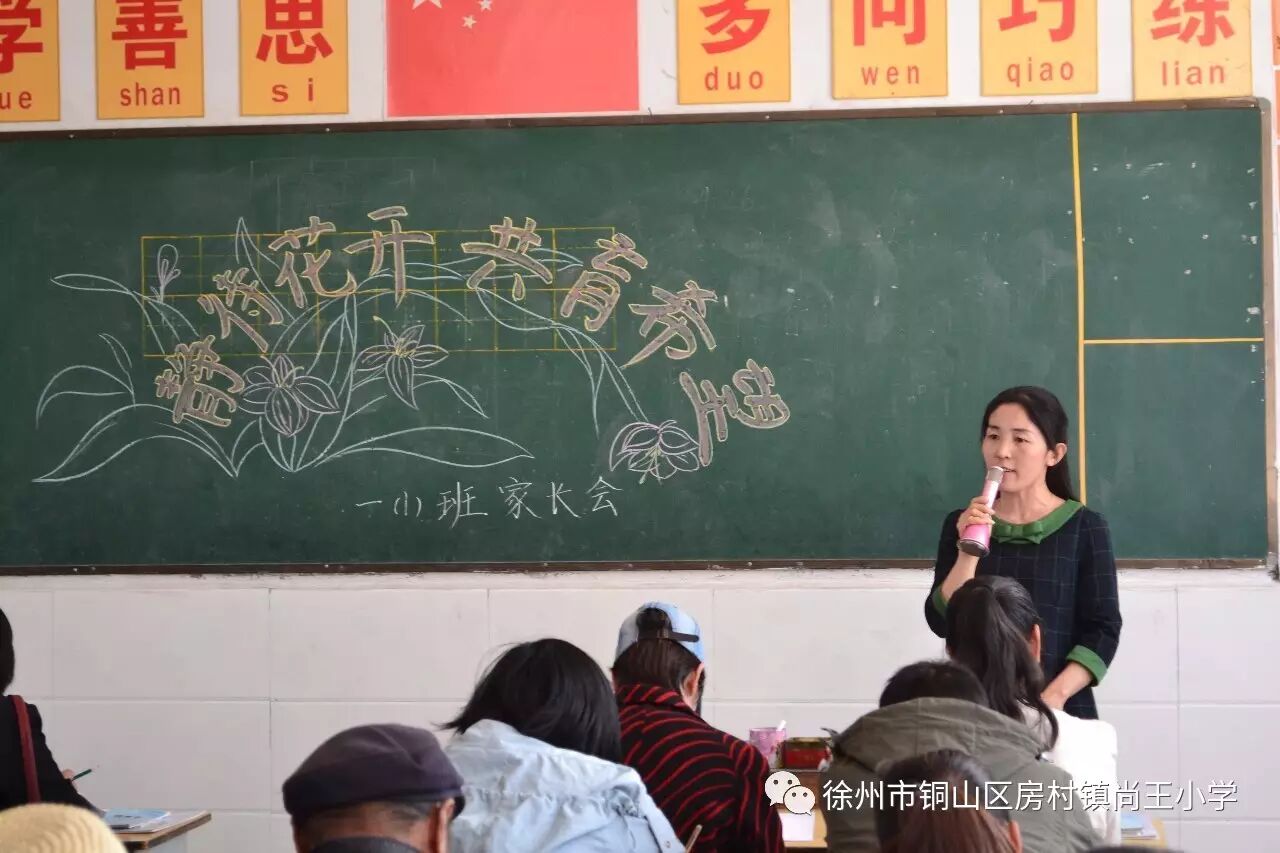 学 善 思 多 问 巧 练
ue shan si duo wen qiao lian
静待花开 共育希望
一(1)班 家长会
徐州市铜山区房村镇尚王小学